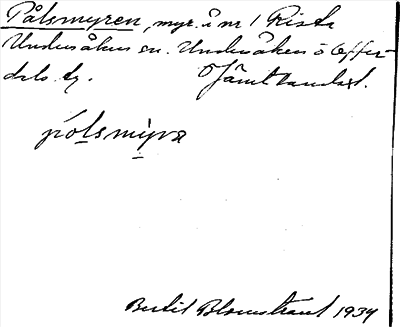 Pålsmyren, myr. å nr 1 Rista
Undersåkers sn. Undersåkers o Offer-
dals tg. Jämtland.
pólsmỳra
Bertil Blomstrand 1934